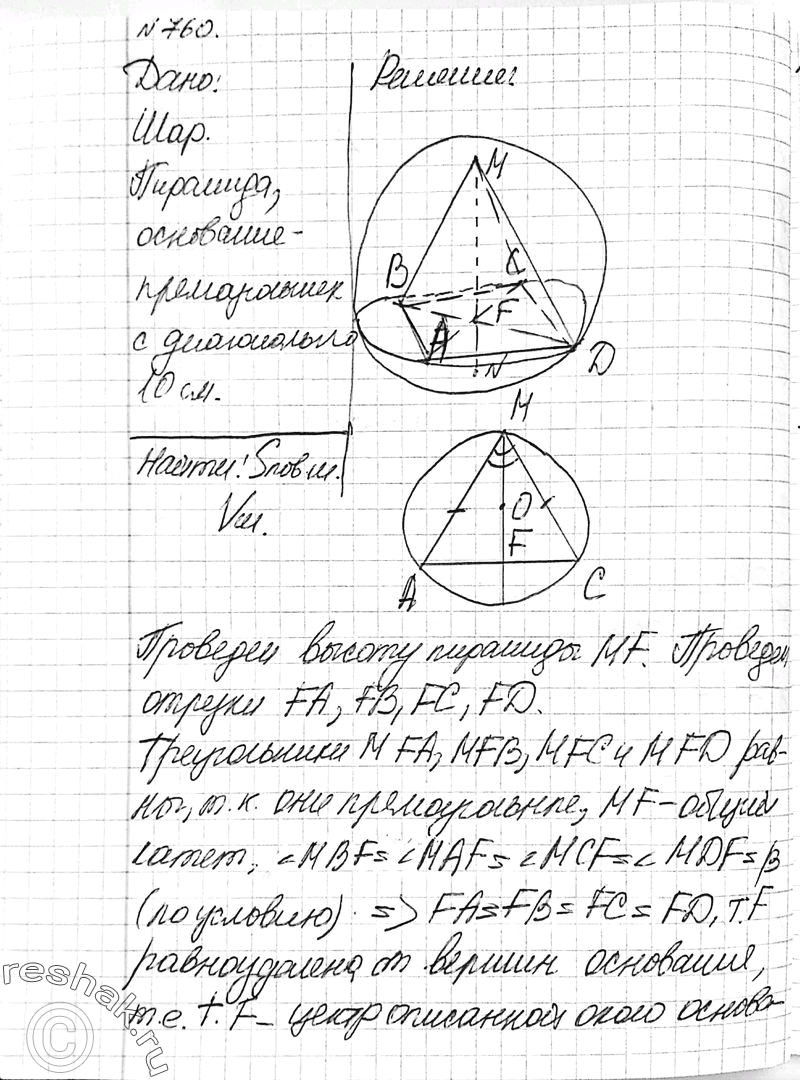 №760.
Дано:
Решение:
Шар.
Пирамида,
основание-
прямоугольник
с диагональю
10 см.
Найти: Sповш.
Vш.
M
B
C
F
A
N
D
M
O
F
A
C
Проведем высоту пирамиды MF. Проведем
отрезки FA, FB, FC, FD.
Треугольники MFA, MFB, MFC и MFD рав-
ны, т.к. они прямоугольные, MF-общий
катет, <MBF=<MAF=<MCF=<MDF=β
(по условию) => FA=FB=FC=FD, т.F
равноудалена от вершин основания,
т.е. т.F- центр описанной около основа-
reshak.ru
©